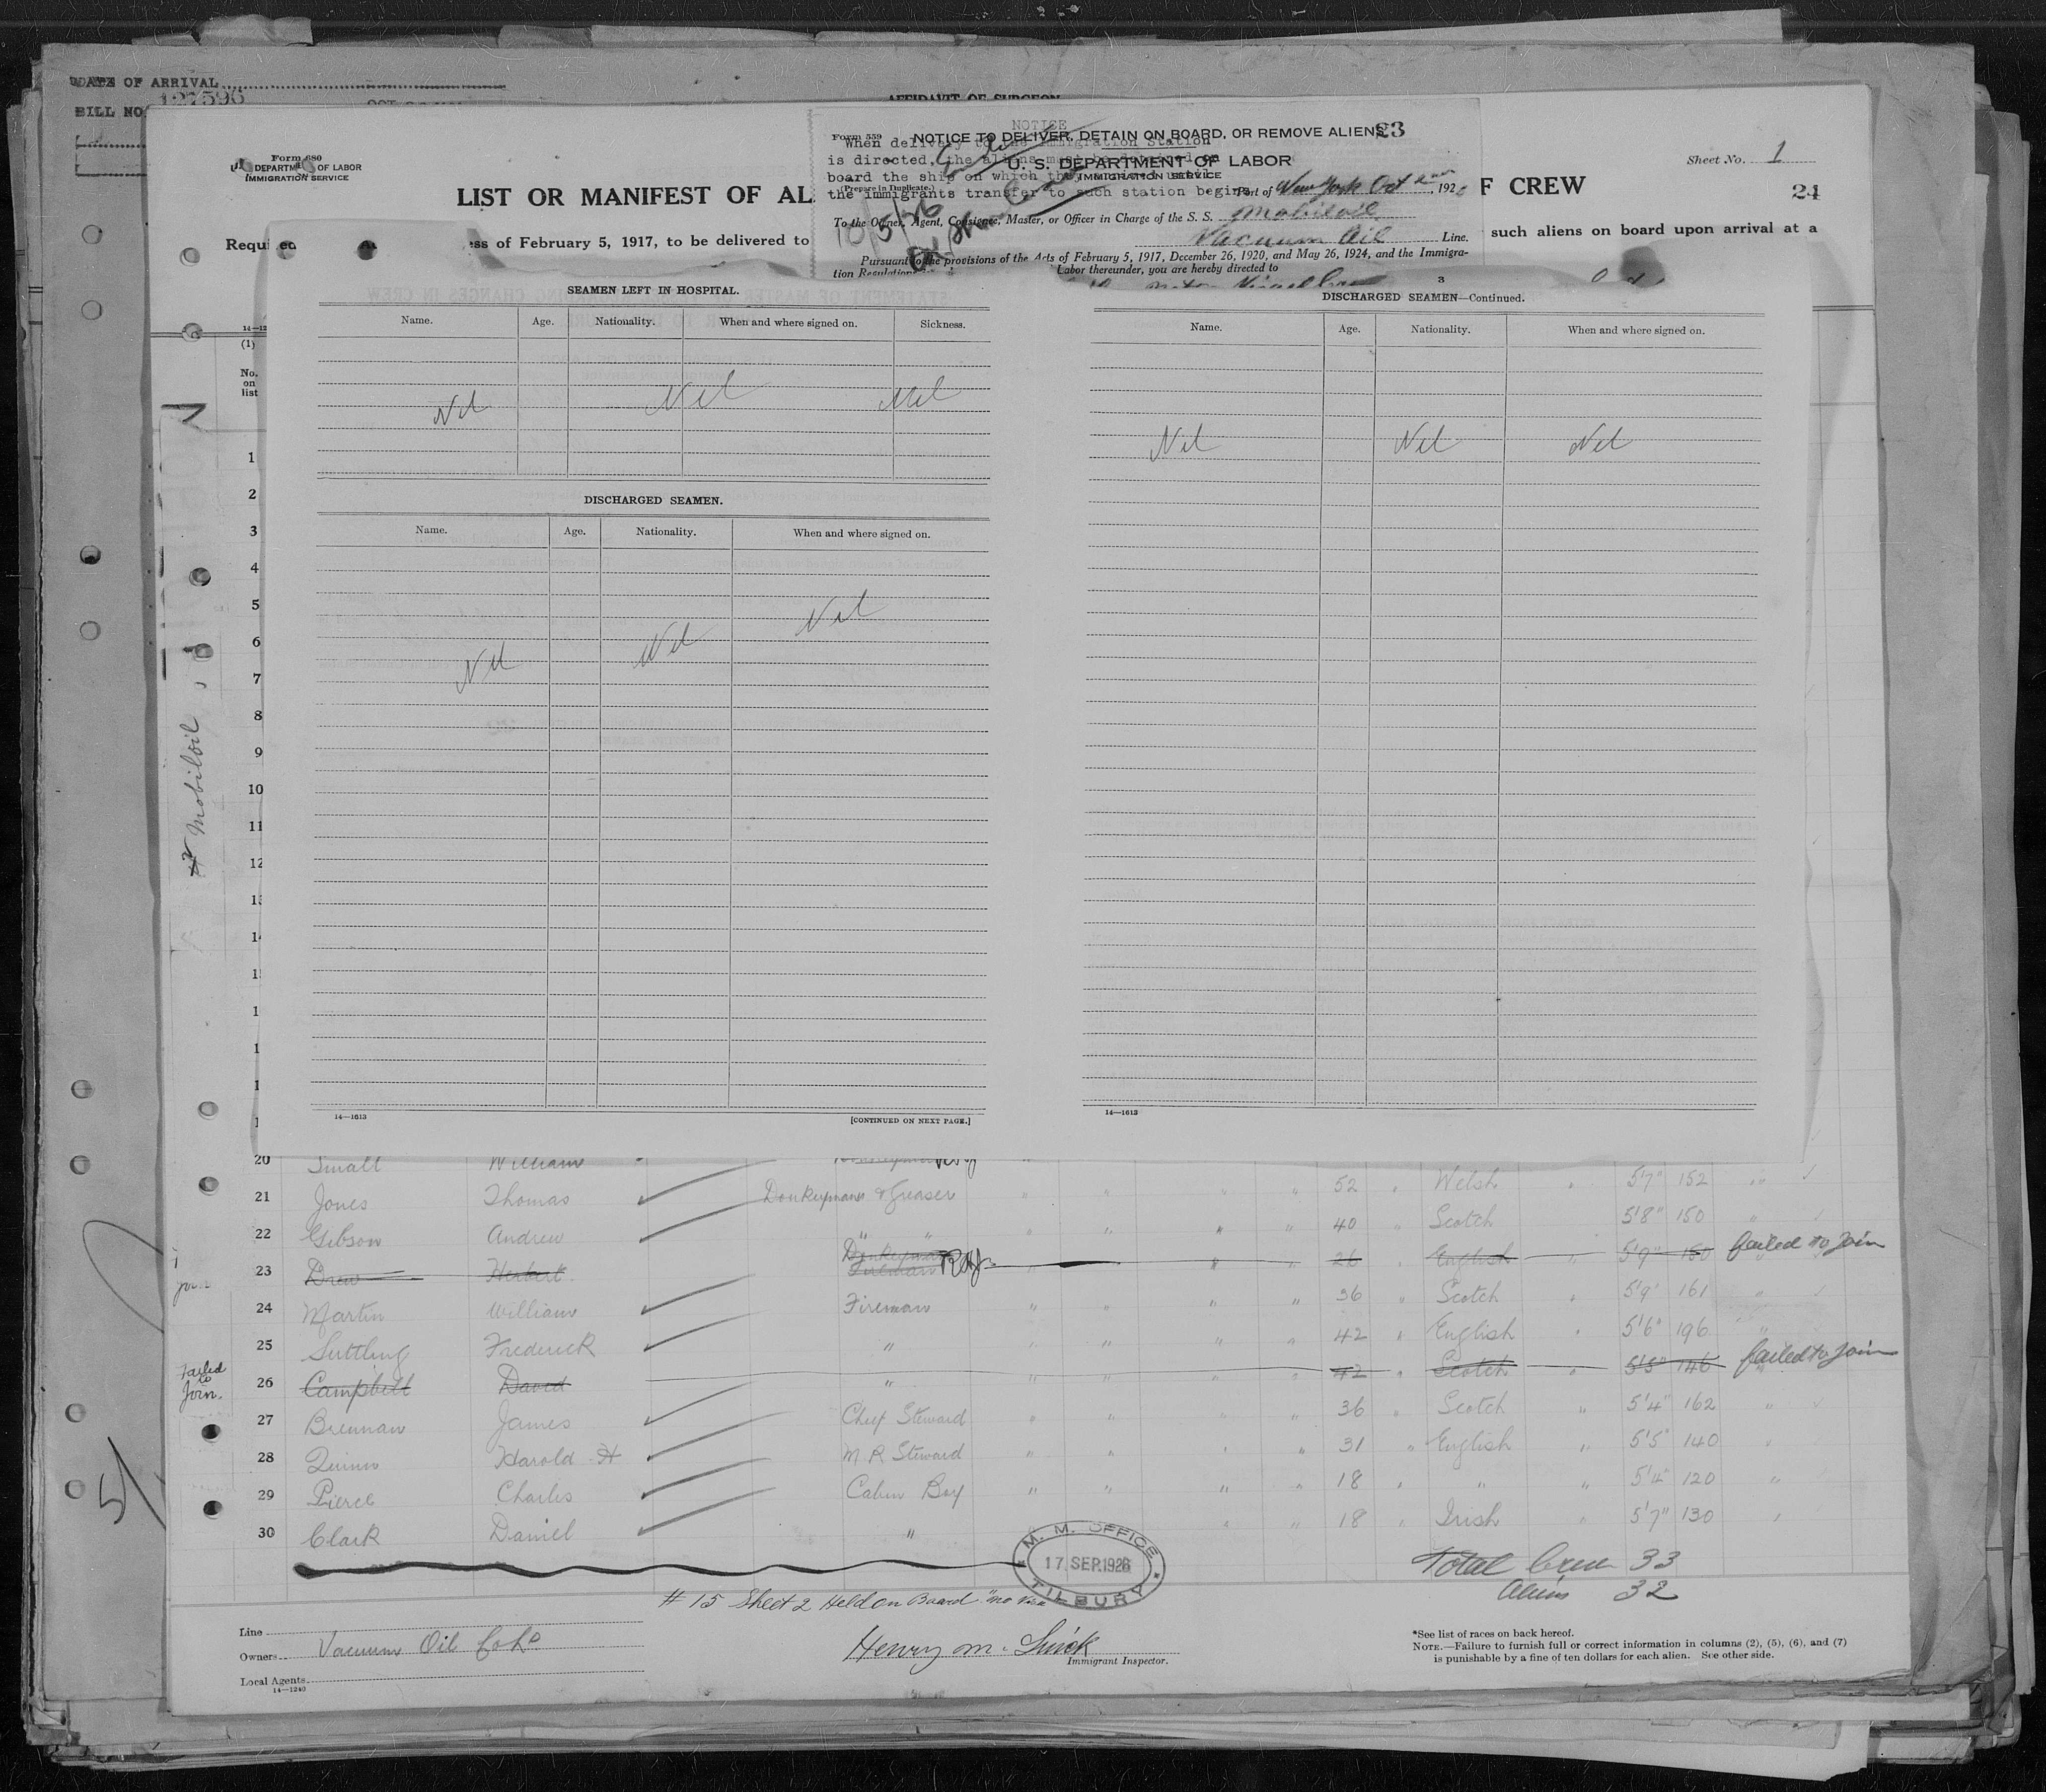 DATE OF ARRIVAL
BILL NO. 127596
AFFIDAVIT OF SURGEON
Form 680
U.S. DEPARTMENT OF LABOR
IMMIGRATION SERVICE
LIST OR MANIFEST OF AL
F CREW
Sheet No. 1
23
24
ss of February 5, 1917, to be delivered to
such aliens on board upon arrival at a
NOTICE
When delivery to the Immigration Station
is directed, the aliens must be detained on
board the ship on which they arrived until
the immigrants transfer to such station begins.
Form 559
NOTICE TO DELIVER, DETAIN ON BOARD, OR REMOVE ALIENS
U. S. DEPARTMENT OF LABOR
IMMIGRATION SERVICE
(Prepare in Duplicate.)
Port of New York Oct 2nd, 192
10/5/26
To the Owner, Agent, Consignee, Master, or Officer in Charge of the S. S. Mobiloil
Vacuum Oil Line.
Pursuant to the provisions of the Acts of February 5, 1917, December 26, 1920, and May 26, 1924, and the Immigra-
tion Regulations
Labor thereunder, you are hereby directed to
3
SEAMEN LEFT IN HOSPITAL.
Name. Age. Nationality. When and where signed on. Sickness.
Nil Nil Nil
DISCHARGED SEAMEN.
Name. Age. Nationality. When and where signed on.
Nil Nil Nil
14—1613 [CONTINUED ON NEXT PAGE.]
DISCHARGED SEAMEN—Continued.
Name. Age. Nationality. When and where signed on.
Nil Nil Nil
14—1613
14—12
(1)
No. on list
1
2
3
4
5
6
7
8
9
10
11
12
Mobiloil
20 Small William
21 Jones Thomas Donkeyman & Greaser " " " " 52 " Welsh " 5'7" 152 "
22 Gibson Andrew " " " " " " 40 " Scotch 5'8" 150 "
23 Drew Herbert Donkeyman Fireman " " 26 English " 5'9" 150 failed to join
24 Martin William Fireman " " " " 36 " Scotch " 5'9" 161 "
25 Suttling Frederick " " " " " 42 " English " 5'6" 196 "
Failed to Join.
26 Campbell David " " " " " 42 " Scotch " 5'5" 146 failed to join
27 Brennan James Chief Steward " " " " 36 " Scotch " 5'4" 162 "
28 Quinn Harold H M R Steward " " " " 31 " English " 5'5" 140 "
29 Pierce Charles Cabin Boy " " " " 18 " " " 5'4" 120 "
30 Clark Daniel " " " 18 " Irish " 5'7" 130 "
M. M. OFFICE
17 SEP. 1926
TILBURY
Total Crew 33
Aliens 32
# 15 Sheet 2 Held on Board "no visa
Line
Owners Vacuum Oil Co Ld
Local Agents
14—1240
Henry M.
Immigrant Inspector.
*See list of races on back hereof.
NOTE.—Failure to furnish full or correct information in columns (2), (5), (6), and (7)
is punishable by a fine of ten dollars for each alien. See other side.